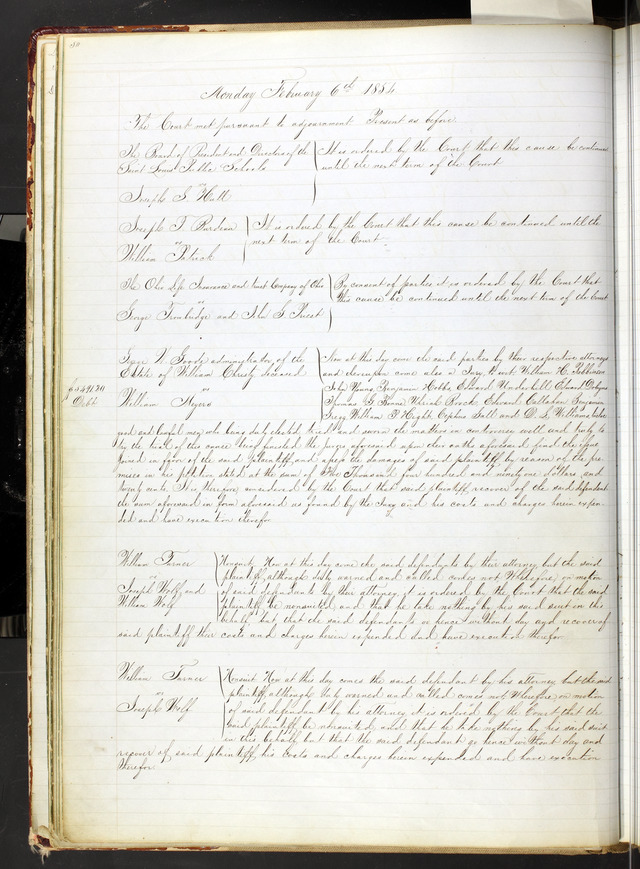 Monday February 6th 1854
The Court met pursuant to adjournment Present as before
The Board of President and Directors of the It is ordered by the Court that this cause be continued
Saint Louis Public Schools until the next term of the Court
vs
Joseph S. Hull
Joseph T. It is ordered by the Court that this cause be continued until the
vs next term of the Court
William Patrick
The Ohio Life Insurance and Trust Company of Ohio By consent of parties it is ordered by the Court that
vs this cause be continued until the next term of the Court
George Trowbridge and John S. Priest
George W. Goode administrator of the Now at this day come the said parties by their respective attorneys
Estate of William Christy deceased and thereupon come also a Jury, to wit William H.
vs John Young Benjamin Hobbs Edward Underhill Edward
William Myers Thomas G. Ulrich Rock Edward Callahan Benjamin
$2491.20
Debt
Gregg William P. Cephas and D. L. Williams twelve
good and lawful men who being duly elected tried and sworn the matters in controversy well and truly to
try the truth of the same being the Jury aforesaid upon their oaths aforesaid find the issue
joined in favor of the said plaintiff, and assess the damages of said plaintiff by reason of the pre-
mises in his petition stated at the sum of Two Thousand four hundred and ninety one dollars and
twenty cents. It is therefore considered by the Court that said plaintiff recover of the said defendant
the sum aforesaid in form aforesaid as found by the Jury and his costs and charges herein expen-
ded and have execution therefor
William Turner Nonsuit Now at this day come the said defendants by their attorney but the said
vs plaintiff although duly warned and called comes not Wherefore on motion
Joseph Wolf and of said defendants by their attorney it is ordered by the Court that the said
William Wolf plaintiff be nonsuited and that he take nothing by his said suit in this
behalf but that the said defendants go hence without day and recover of
said plaintiff their costs and charges herein expended and have execution therefor
William Turner Nonsuit Now at this day comes the said defendant by his attorney but the said
vs plaintiff although duly warned and called comes not Wherefore on motion
Joseph Wolf of said defendant by his attorney it is ordered by the Court that the
said plaintiff be nonsuited and that he take nothing by his said suit
in this behalf but that the said defendant go hence without day and
recover of said plaintiff his costs and charges herein expended and have execution
therefor